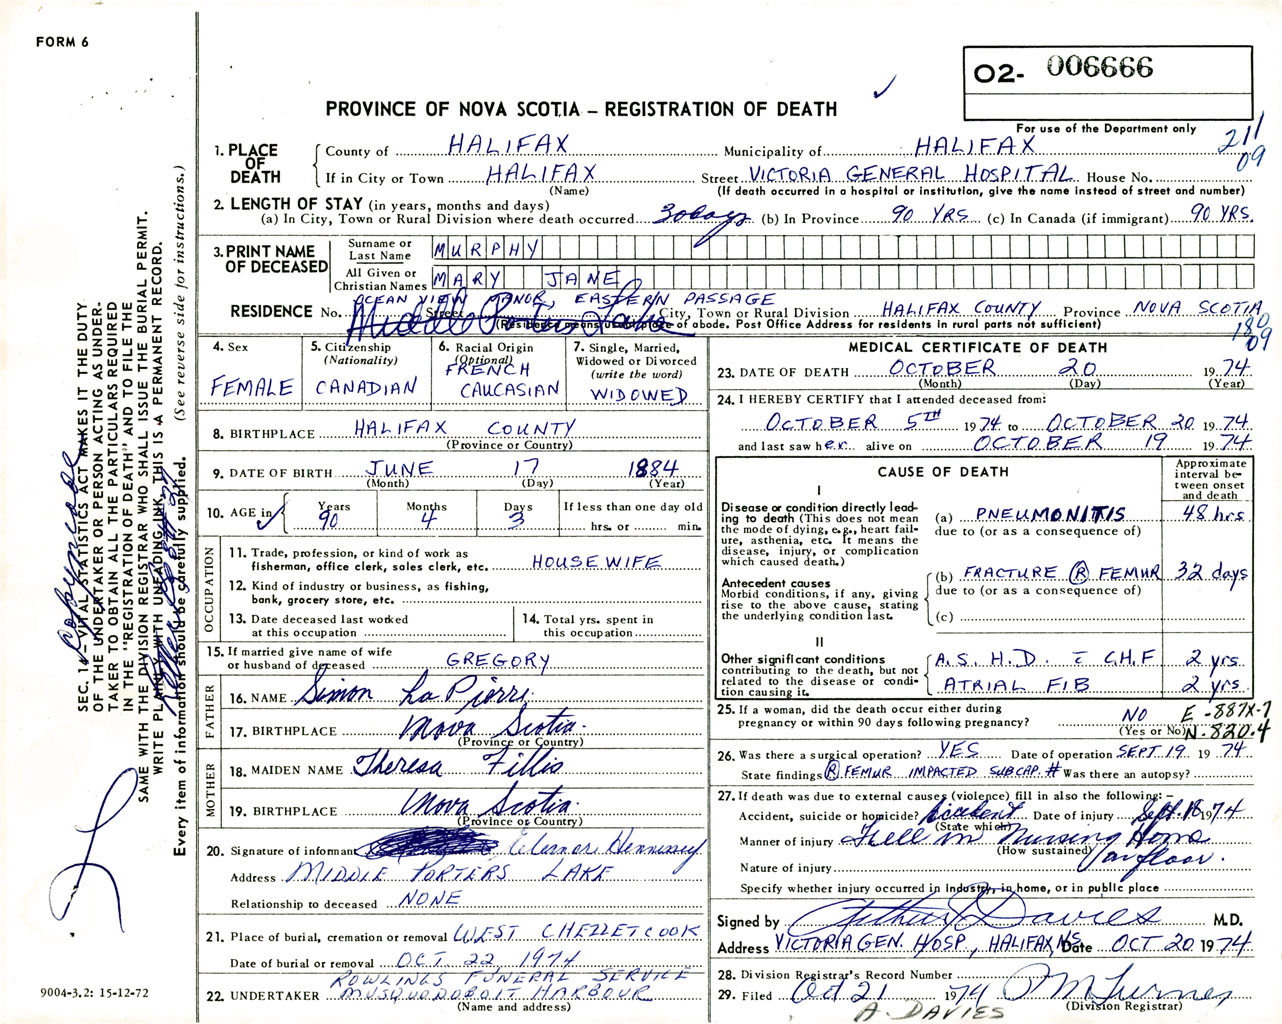 FORM 6
O2- 006666
PROVINCE OF NOVA SCOTIA – REGISTRATION OF DEATH
For use of the Department only
211
09
1. PLACE OF DEATH
County of HALIFAX Municipality of HALIFAX
If in City or Town HALIFAX Street VICTORIA GENERAL HOSPITAL House No.
(Name) (If death occurred in a hospital or institution, give the name instead of street and number)
2. LENGTH OF STAY (in years, months and days)
(a) In City, Town or Rural Division where death occurred 30 days (b) In Province 90 YRS (c) In Canada (if immigrant) 90 YRS.
3. PRINT NAME OF DECEASED
Surname or Last Name MURPHY
All Given or Christian Names MARY JANE
OCEAN VIEW MANOR, EASTERN PASSAGE
RESIDENCE No. Street Middle Porters Lake City, Town or Rural Division HALIFAX COUNTY Province NOVA SCOTIA
(Residence means usual place of abode. Post Office Address for residents in rural parts not sufficient)
180
09
4. Sex
FEMALE
5. Citizenship
(Nationality)
CANADIAN
6. Racial Origin
(Optional)
FRENCH
CAUCASIAN
7. Single, Married, Widowed or Divorced
(write the word)
WIDOWED
8. BIRTHPLACE HALIFAX COUNTY
(Province or Country)
9. DATE OF BIRTH JUNE 17 1884
(Month) (Day) (Year)
10. AGE in Years 90 Months 4 Days 3 If less than one day old
hrs. or min.
OCCUPATION
11. Trade, profession, or kind of work as
fisherman, office clerk, sales clerk, etc. HOUSEWIFE
12. Kind of industry or business, as fishing,
bank, grocery store, etc.
13. Date deceased last worked
at this occupation
14. Total yrs. spent in
this occupation
15. If married give name of wife
or husband of deceased GREGORY
FATHER
16. NAME Simon La Pierre
17. BIRTHPLACE Nova Scotia
(Province or Country)
MOTHER
18. MAIDEN NAME Theresa Fillis
19. BIRTHPLACE Nova Scotia
(Province or Country)
20. Signature of informant Eleanor Hennessey
Address MIDDLE PORTERS LAKE
Relationship to deceased NONE
21. Place of burial, cremation or removal WEST CHEZZETCOOK
Date of burial or removal OCT 22, 1974
ROWLINGS FUNERAL SERVICE
22. UNDERTAKER MUSQUODOBOIT HARBOUR
(Name and address)
MEDICAL CERTIFICATE OF DEATH
23. DATE OF DEATH OCTOBER 20 1974
(Month) (Day) (Year)
24. I HEREBY CERTIFY that I attended deceased from:
OCTOBER 5TH 1974 to OCTOBER 20 1974
and last saw her alive on OCTOBER 19 1974
CAUSE OF DEATH
Approximate interval between onset and death
I
Disease or condition directly leading to death (This does not mean the mode of dying, e.g., heart failure, asthenia, etc. It means the disease, injury, or complication which caused death.)
(a) PNEUMONITIS 48 hrs
due to (or as a consequence of)
Antecedent causes
Morbid conditions, if any, giving rise to the above cause, stating the underlying condition last.
(b) FRACTURE (R) FEMUR 32 days
due to (or as a consequence of)
(c)
II
Other significant conditions contributing to the death, but not related to the disease or condition causing it.
A.S.H.D. c̄ C.H.F 2 yrs.
ATRIAL FIB 2 yrs
25. If a woman, did the death occur either during
pregnancy or within 90 days following pregnancy? NO
(Yes or No)
E-887X-7
N-820.4
26. Was there a surgical operation? YES Date of operation SEPT 19 1974
State findings (R) FEMUR IMPACTED SUBCAP # Was there an autopsy?
27. If death was due to external causes (violence) fill in also the following: –
Accident, suicide or homicide? Accident Date of injury Sept. 18 1974
(State which)
Manner of injury Fell in Nursing Home
(How sustained) on floor.
Nature of injury
Specify whether injury occurred in industry, in home, or in public place
Signed by Arthur J Davies M.D.
Address VICTORIA GEN. HOSP, HALIFAX, N.S. Date OCT 20 1974
28. Division Registrar's Record Number
29. Filed Oct 21 1974 M Turner
(Division Registrar)
A. DAVIES
9004-3.2: 15-12-72
SEC. 17 – VITAL STATISTICS ACT MAKES IT THE DUTY
OF THE UNDERTAKER OR PERSON ACTING AS UNDER-
TAKER TO OBTAIN ALL THE PARTICULARS REQUIRED
IN THE "REGISTRATION OF DEATH" AND TO FILE THE
SAME WITH THE DIVISION REGISTRAR WHO SHALL ISSUE THE BURIAL PERMIT.
WRITE PLAINLY WITH UNFADING INK. THIS IS A PERMANENT RECORD.
Every item of information should be carefully supplied. (See reverse side for instructions.)